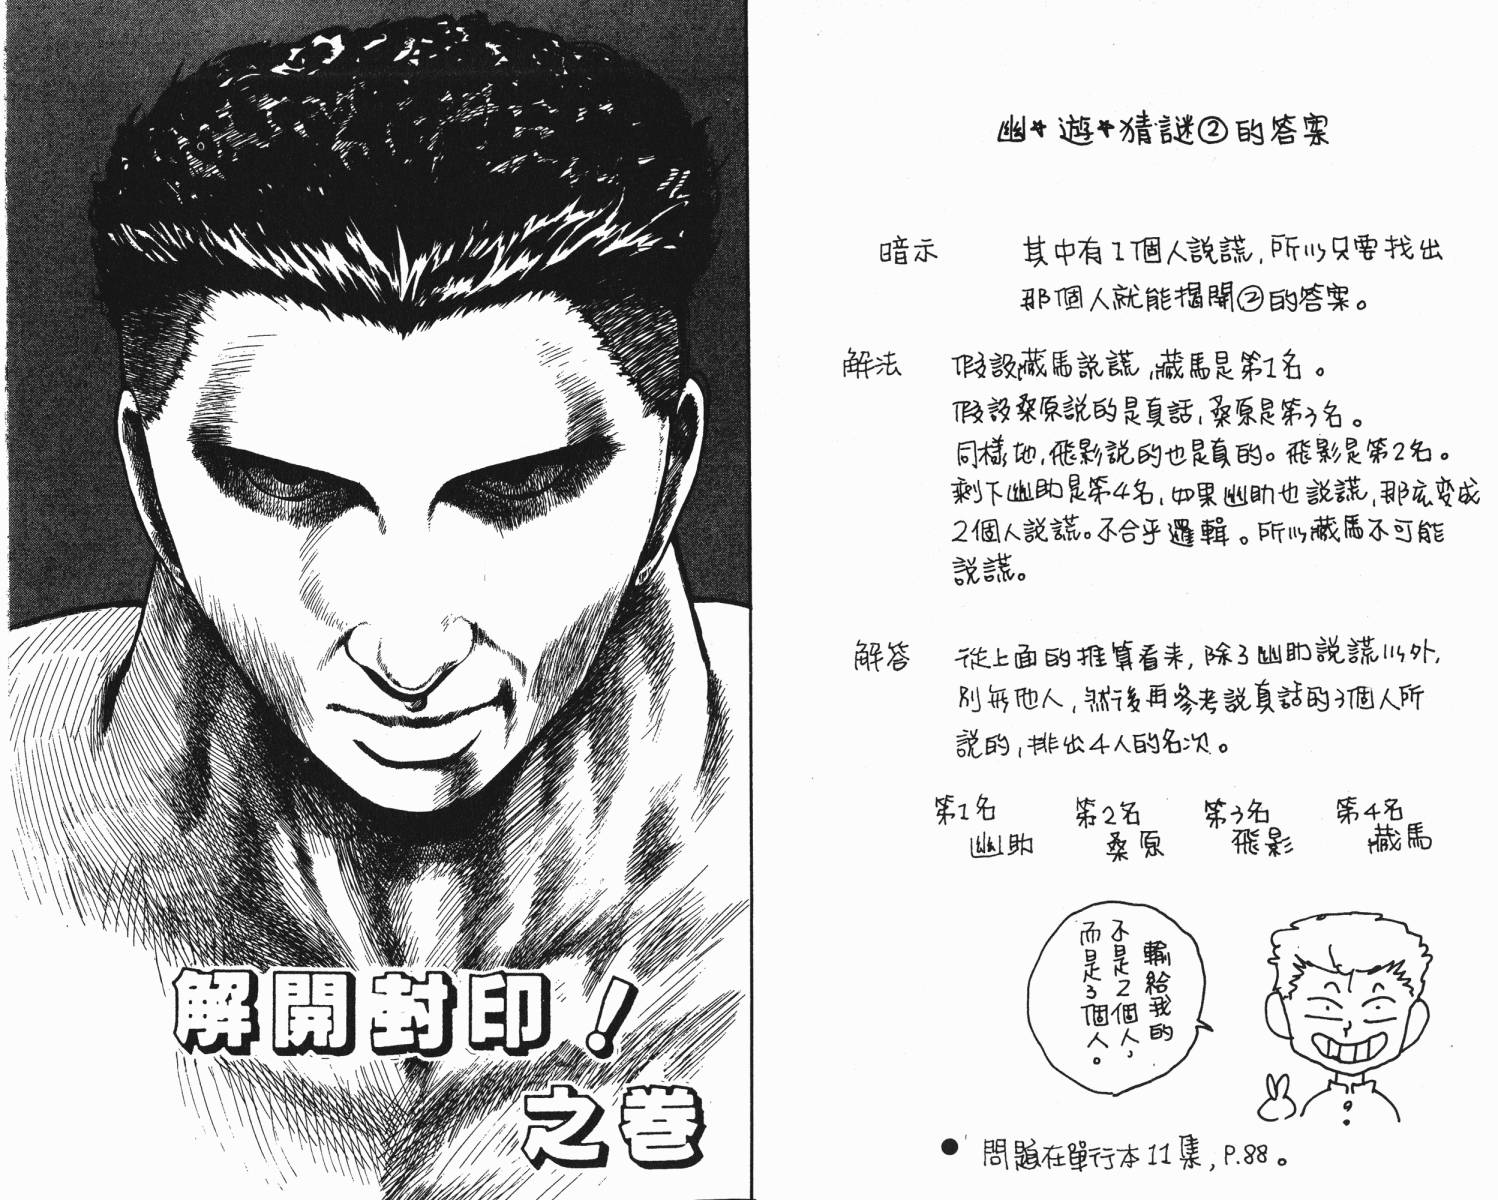 解開封印！
之卷
幽★遊★猜謎②的答案
暗示 其中有1個人說謊，所以只要找出
那個人就能揭開②的答案。
解法 假設藏馬說謊，藏馬是第1名。
假設桑原說的是真話，桑原是第3名。
同樣地，飛影說的也是真的。飛影是第2名。
剩下幽助是第4名，如果幽助也說謊，那麼變成
2個人說謊。不合乎邏輯。所以藏馬不可能
說謊。
解答 從上面的推算看来，除了幽助說謊以外，
別無他人，然後再參考說真話的3個人所
說的，排出4人的名次。
第1名 第2名 第3名 第4名
幽助 桑原 飛影 藏馬
輸給我的
不是2個人，
而是3個人。
●問題在單行本11集，P.88。